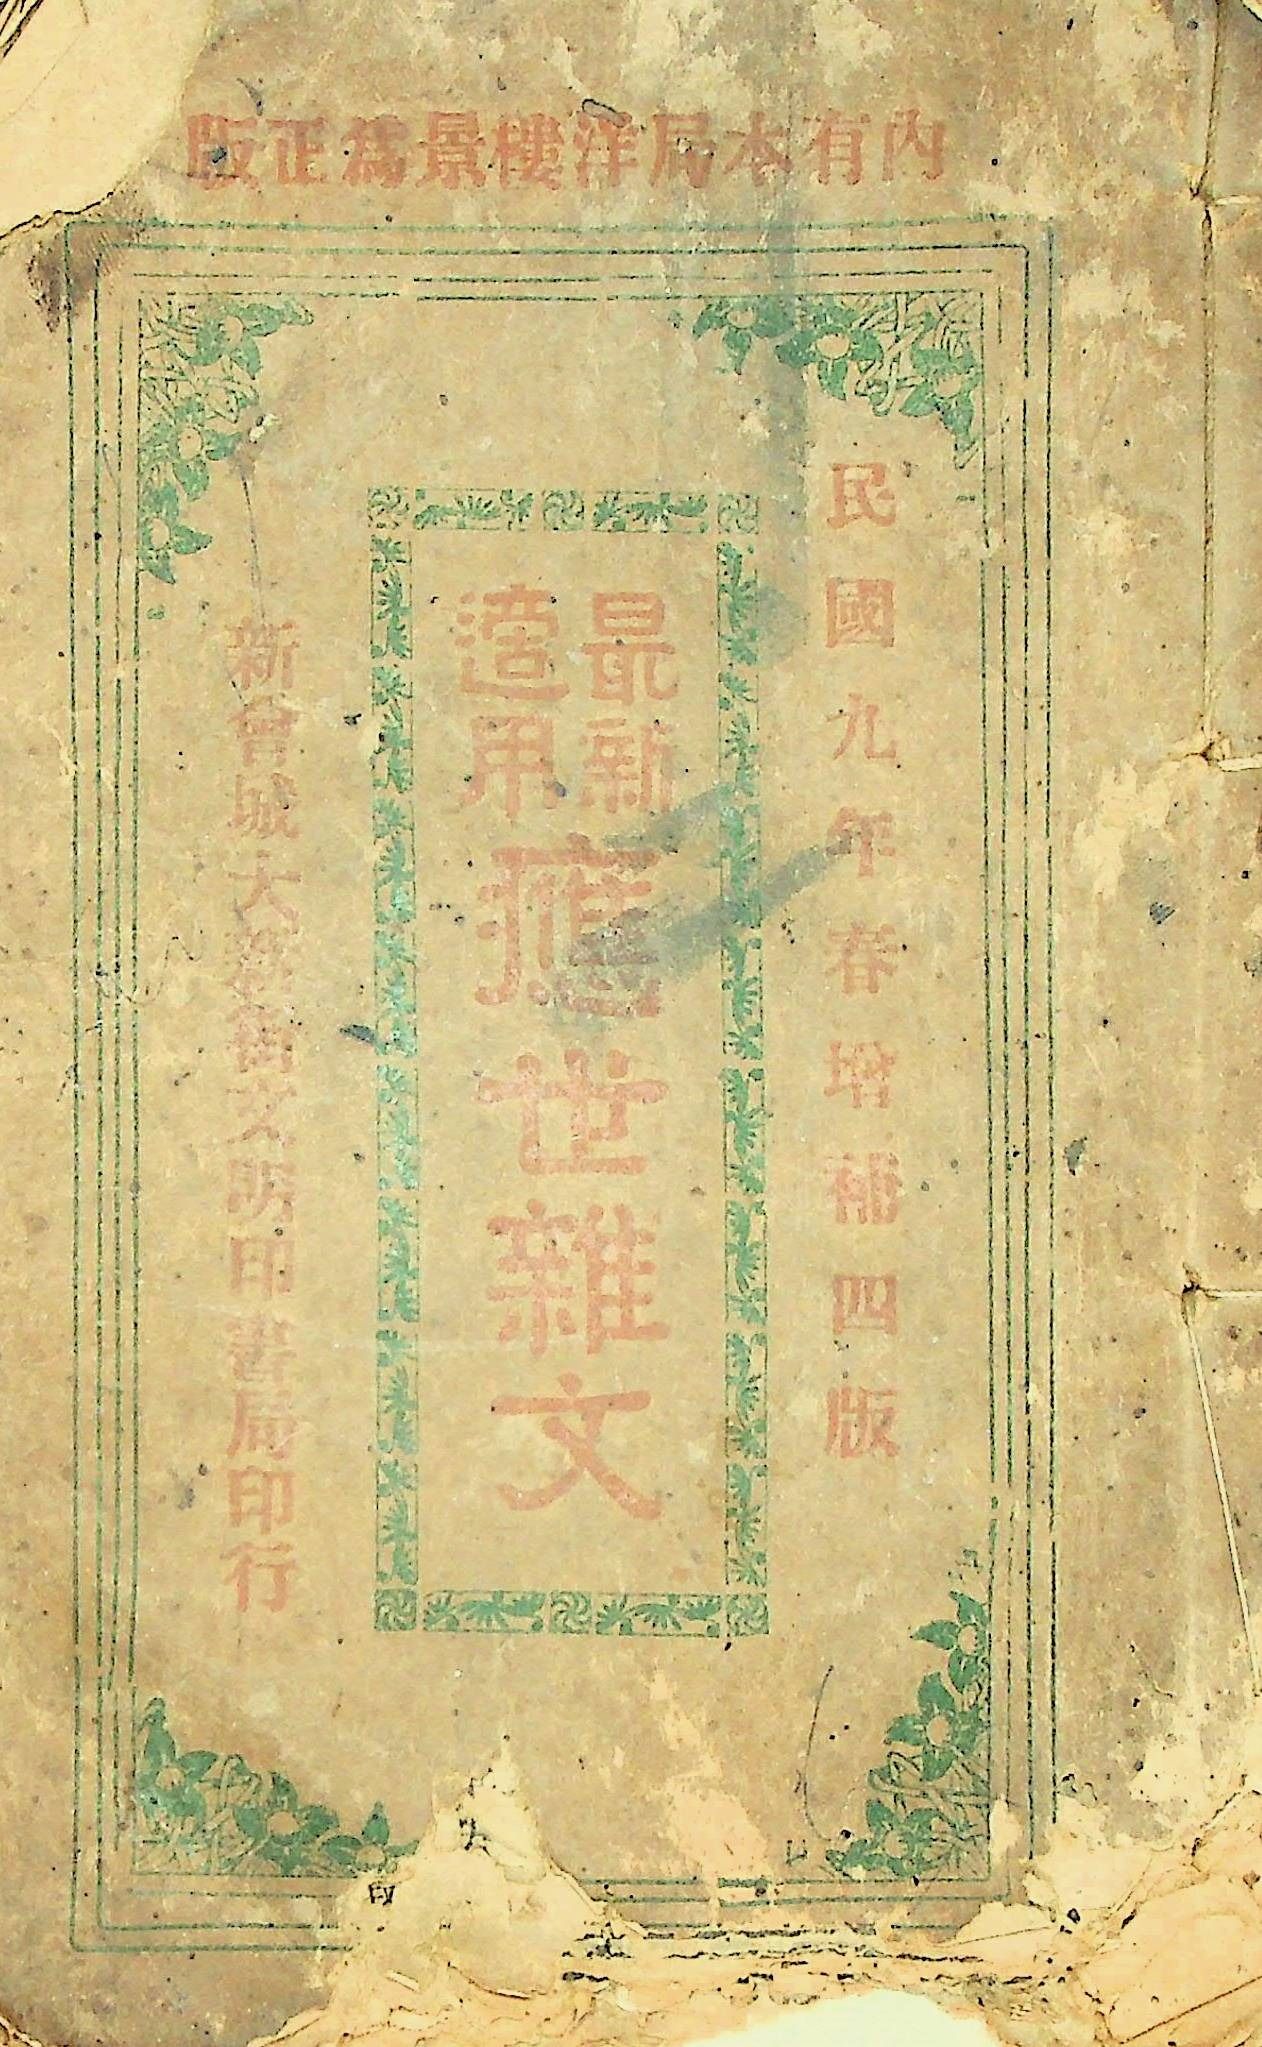 內有本局洋樓景為正版
民國九年春增補四版
最新
適用
應世雜文
新會城大新街文明印書局印行